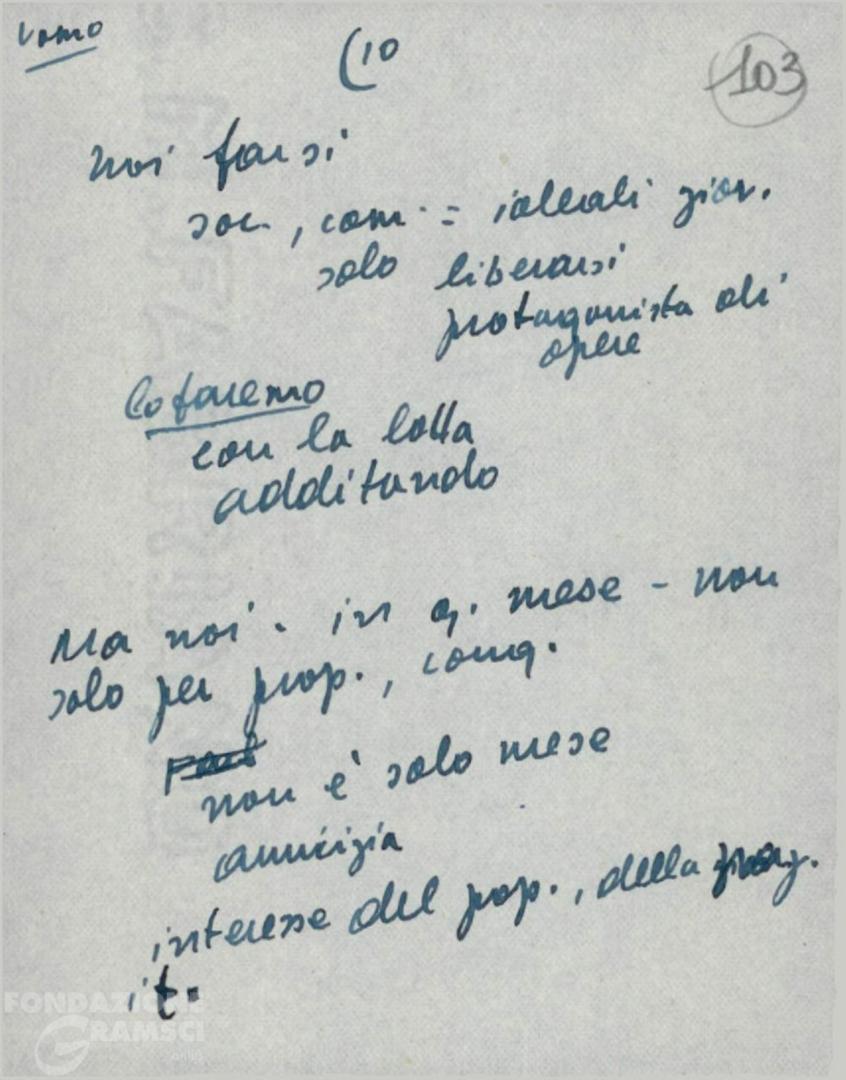 Uomo
(10
103
noi farsi
soc., com. = ideali giov.
solo liberarsi
protagonista di
opere
Lo faremo
con la lotta
additando
Ma noi - in q. mese - non
solo per prop., conq.
non è solo mese
amicizia
interesse del pop., della
it.
FONDAZIONE
GRAMSCI